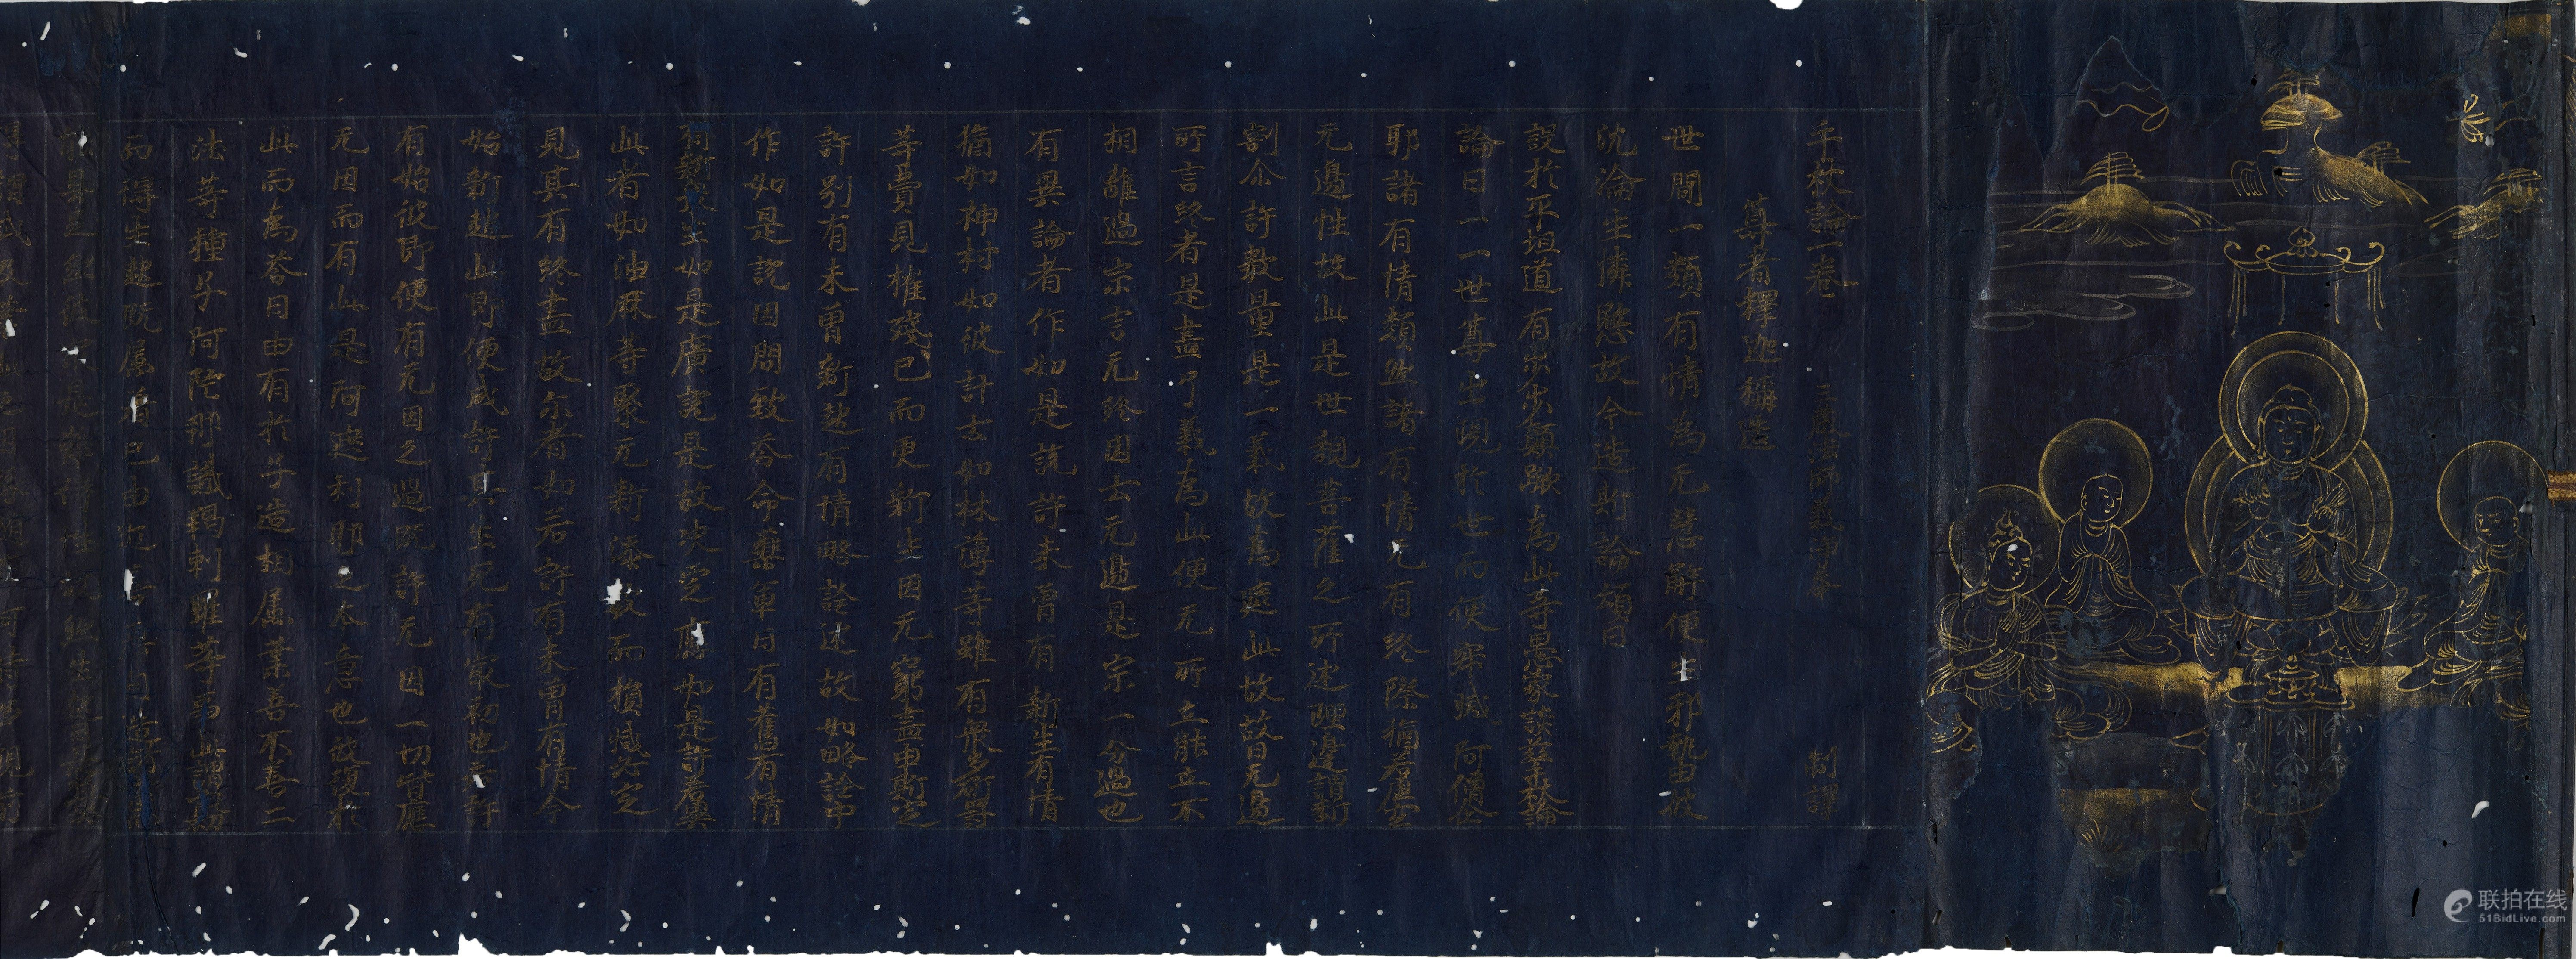 手杖論一卷 三藏法師義淨奉 制譯
尊者釋迦稱造
世間一類有情為无慧解便生邪執由彼
沈淪生憐愍故今造斯論頌曰
設於平坦道有步步顛蹶為此等愚家談茲手杖論
論曰一一世尊出現於世而便寂滅阿僧企
耶諸有情類然諸有情无有終際猶若虛空
无邊性故此是世親菩薩之所述理邊謂斷
割亦許數量是一義故為遮此故故曰无邊
所言終者是盡了義為此便无所立能立不
相離過宗言无終因云无邊是宗一分過也
有異論者作如是說許未曾有新生有情
猶如神村如彼計云如林薄等雖有眾生斫
等費見摧殘已而更新生因无窮盡由斯定
許別有未曾新起有情略詮述故如略詮中
作如是說因問致答命藥軍曰有舊有情
有新後生如是廣說是故決定應如是許若異
此者如油麻等聚无新添故而損減必定
見其有終盡故尔者如若許有未曾有情今
始新起此即便成許其生死有最初也而許
有始彼即便有无因之過既許无因一切皆應
无因而有此是阿遮利耶之本意也彼復於
此而為答曰由有於子造相屬業善不善二
法等種子阿陀那識羯剌雖等為此謂新
而得生起既屬者已由近